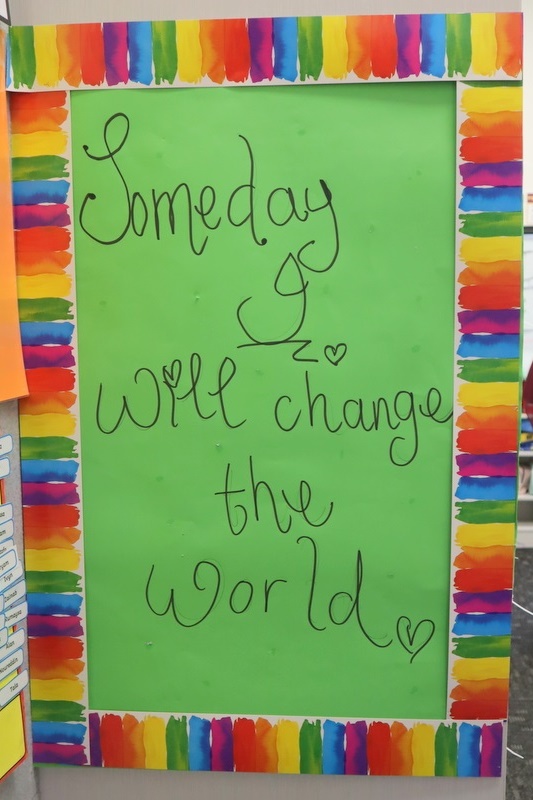 Someday
I
will change
the
World